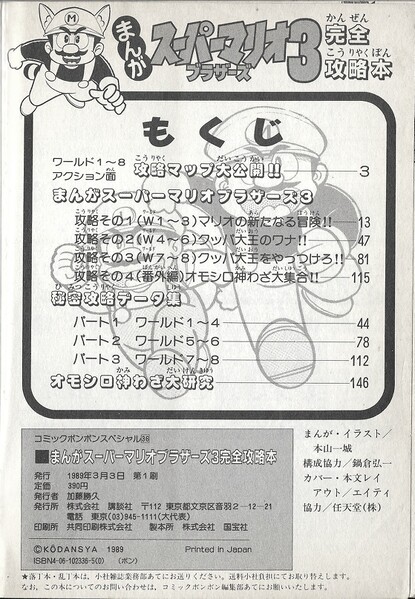 まんがスーパーマリオブラザーズ3
かんぜん
完全
こうりゃくぼん
攻略本
もくじ
ワールド1～8
アクション面
こうりゃく だいこうかい
攻略マップ大公開!! 3
まんがスーパーマリオブラザーズ3
攻略その1(W1～3)マリオの新たなる冒険!! 13
攻略その2(W4～6)クッパ大王のワナ!! 47
攻略その3(W7～8)クッパ大王をやっつけろ!! 81
攻略その4(番外編)オモシロ神わざ大集合!! 115
ひみつこうりゃく
秘密攻略データ集
パート1 ワールド1～4 44
パート2 ワールド5～6 78
パート3 ワールド7～8 112
かみ だいけんきゅう
オモシロ神わざ大研究 146
コミックボンボンスペシャル㊳
■まんがスーパーマリオブラザーズ3完全攻略本
発行 1989年3月3日 第1刷
定価 390円
発行者 加藤勝久
発行所 株式会社 講談社 〒112 東京都文京区音羽2-12-21
電話 東京(03)945-1111(大代表)
印刷所 共同印刷株式会社 製本所 株式会社 国宝社
©KŌDANSYA 1989 Printed in Japan
ISBN4-06-102336-5(0) (ボン)
まんが・イラスト／
本山一城
構成協力／鍋倉弘一
カバー・本文レイ
アウト／エイティ
協力／任天堂(株)
★落丁本・乱丁本は、小社雑誌業務部あてにお送りください。送料小社負担にてお取り替えします。
なお、この本についてのお問い合わせは、コミックボンボン編集部あてにお願いいたします。